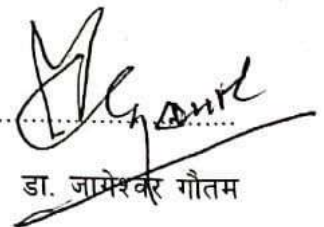 डा. जागेश्वर गौतम